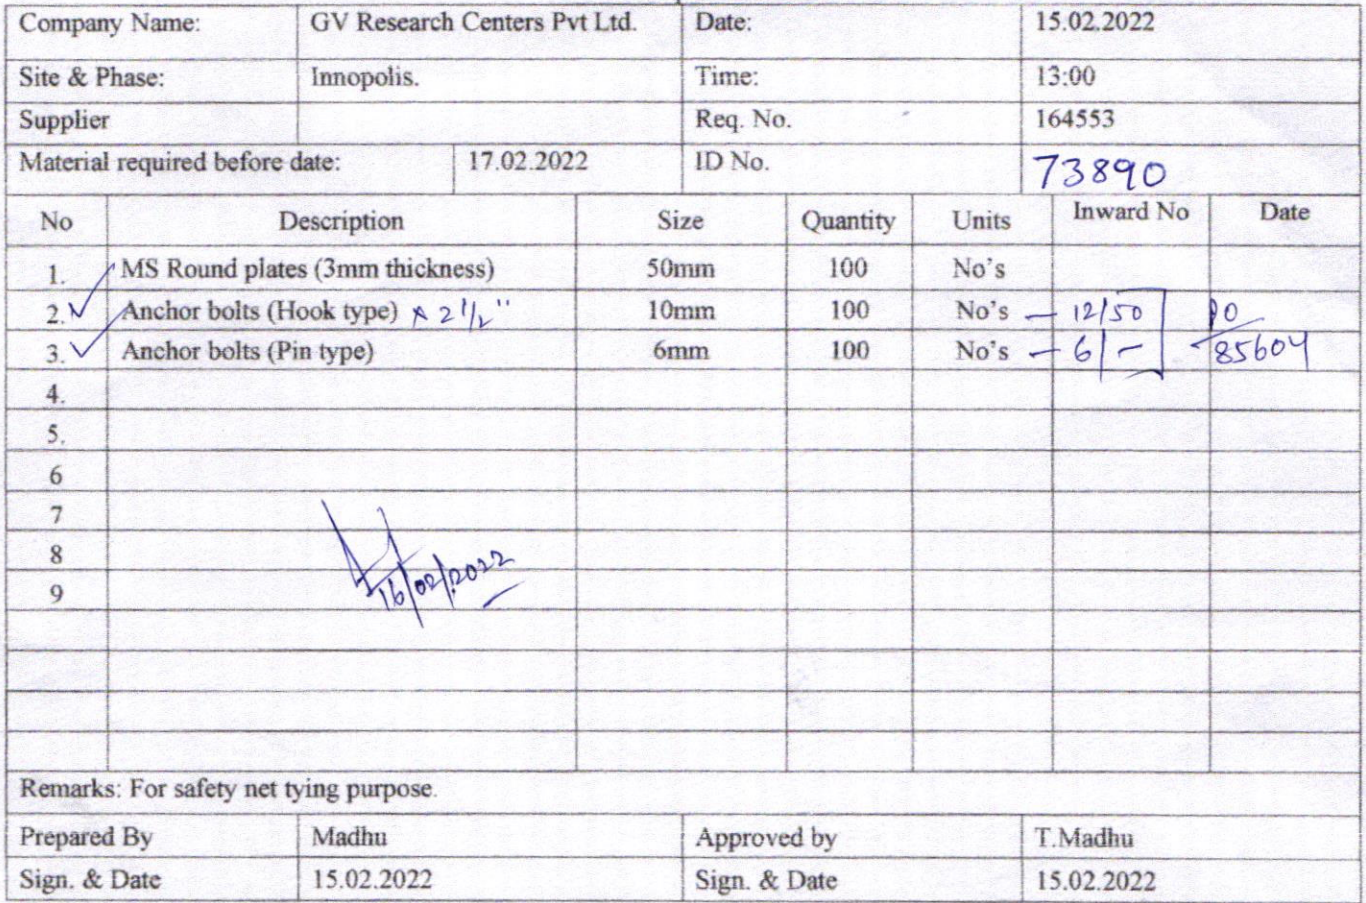 Company Name: GV Research Centers Pvt Ltd. Date: 15.02.2022
Site & Phase: Innopolis. Time: 13:00
Supplier Req. No. 164553
Material required before date: 17.02.2022 ID No. 73890
No Description Size Quantity Units Inward No Date
1. MS Round plates (3mm thickness) 50mm 100 No's
2. Anchor bolts (Hook type) x 2 1/2" 10mm 100 No's – 12/50 PO
3. Anchor bolts (Pin type) 6mm 100 No's – 6/- 85604
4.
5.
6
7
8
9
16/02/2022
Remarks: For safety net tying purpose.
Prepared By Madhu Approved by T.Madhu
Sign. & Date 15.02.2022 Sign. & Date 15.02.2022